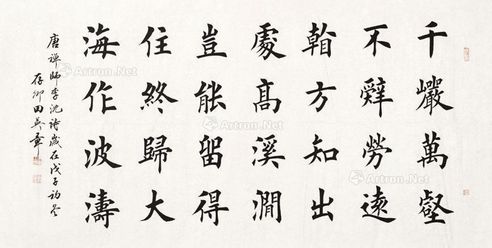 千巖萬壑
不辭勞遠
看方知出
處高溪澗
豈能留得
住終歸大
海作波濤
唐禪師李忱詩歲在戊子初冬
存卿田英章
Artron.Net
Artron.Net
Artron.Net
Artron.Net